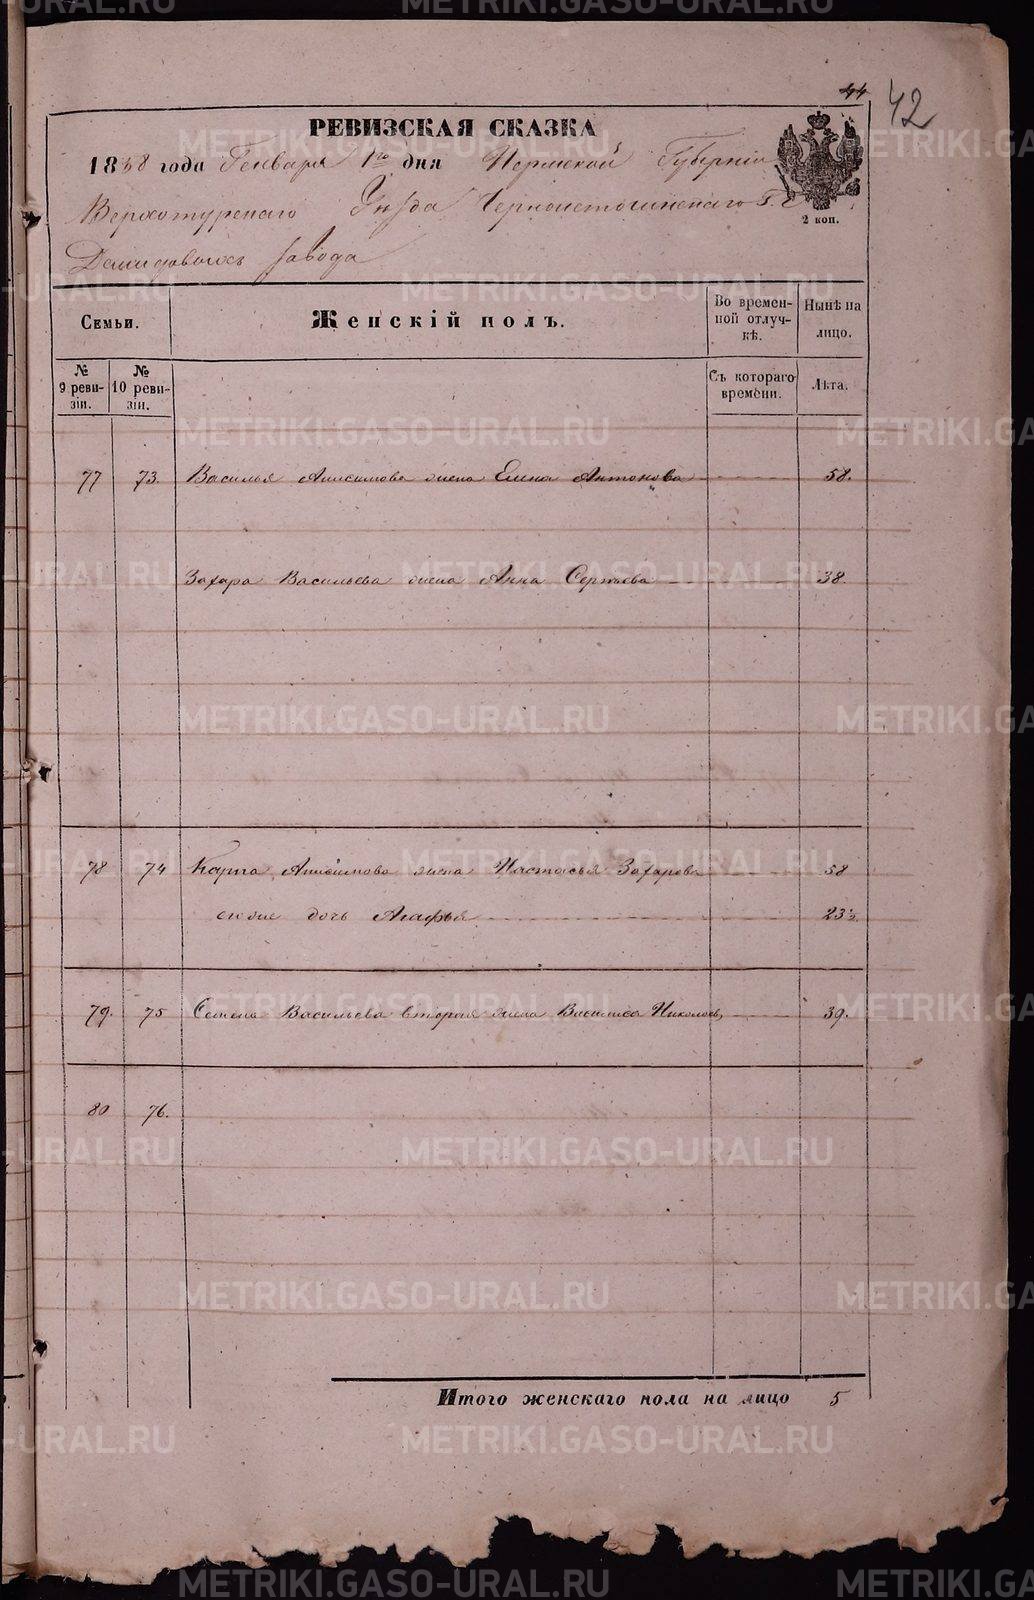 44
42
РЕВИЗСКАЯ СКАЗКА
1858 года Генваря 1го дня Пермской Губерніи
Верхотурскаго Уѣзда Черноисточинскаго Г. Г.
Демидовыхъ завода
2 коп.
Семьи.
Женскій полъ.
Во времен-
ной отлуч-
кѣ.
Нынѣ на
лицо.
№
9 реви-
зіи.
№
10 реви-
зіи.
Съ котораго
времени.
Лѣта.
77 73. Василья Анисимова жена Елена Антонова 58.
Захара Васильева жена Анна Сергѣева 38.
78 74 Карпа Анисимова жена Настасья Захарова 58
ихъ дочь Агафья 23½
79. 75 Семена Васильева вторая жена Василиса Николаева 39.
80 76.
Итого женскаго пола на лицо 5
METRIKI.GASO-URAL.RU